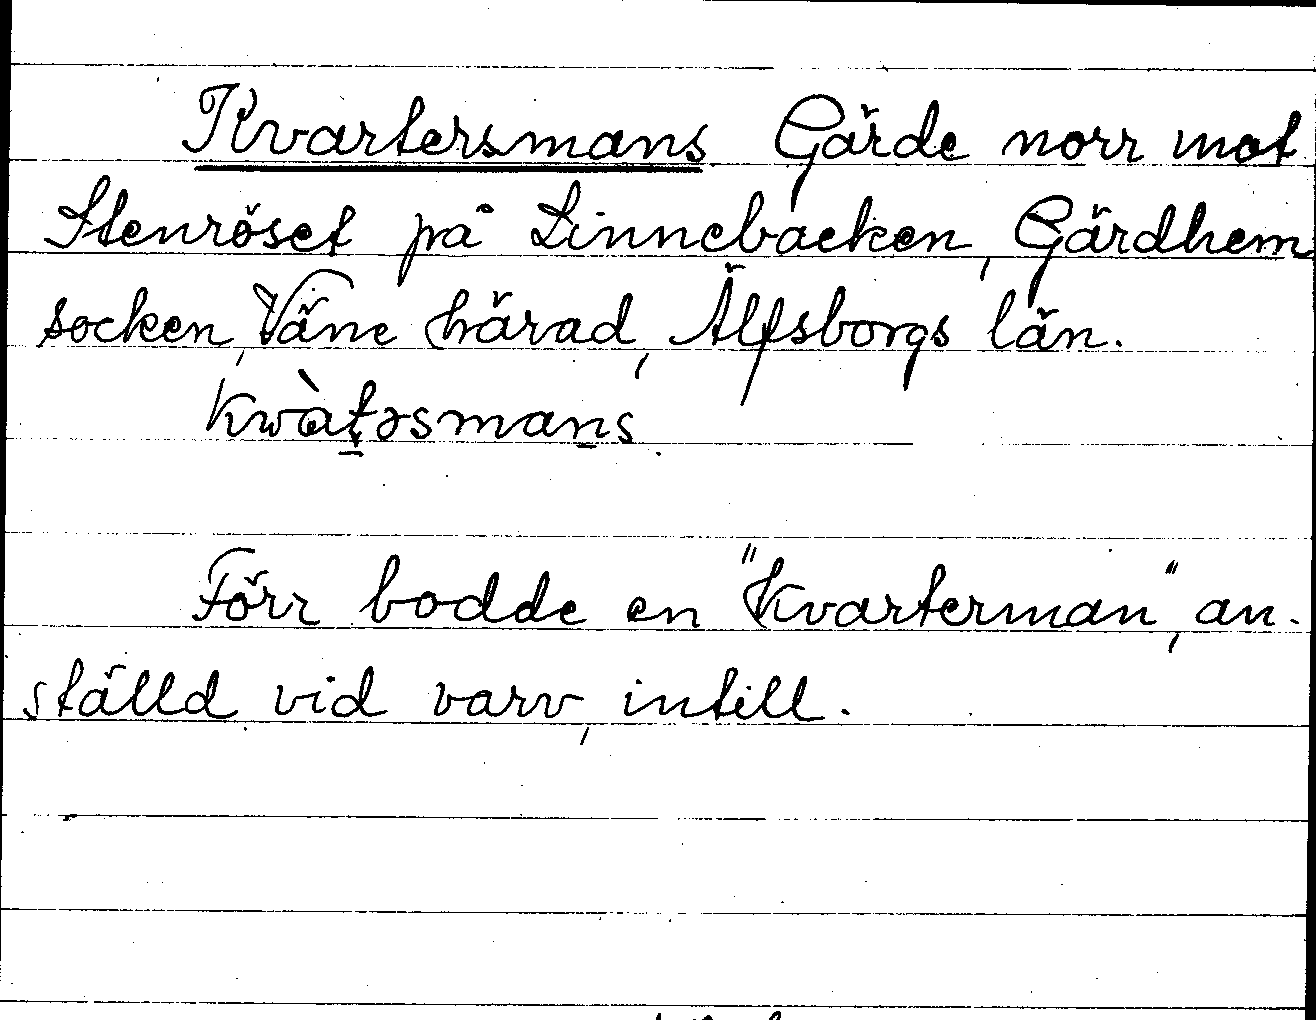 Kvartersmans Gärde norr mot
Stenröset på Linnebacken, Gärdhem
socken, Väne härad, Älfsborgs län.
kwàt̠əsmans
Förr bodde en "kvarterman", an-
ställd vid varv, intill.